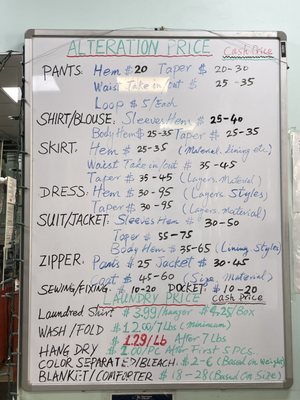 ALTERATION PRICE Cash Price
PANTS: Hem $20 Taper $ 20-30
Waist Take in/out $ 25-35
Loop $5/Each
SHIRT/BLOUSE: Sleeves Hem $ 25-40
Body Hem $ 25-35 Taper $ 25-35
SKIRT: Hem $ 25-35 (Material, Lining etc)
Waist Take in/out $ 35-45
Taper $ 35-45 (Layers, Material)
DRESS: Hem $ 30-95 (Layers, Styles)
Taper $ 30-95 (Layers, Material)
SUIT/JACKET: Sleeves Hem $ 30-50
Taper $ 55-75
Body Hem $ 35-65 (Lining, Styles)
ZIPPER: Pants $ 25 Jacket $ 30-45
Coat $ 45-60 (Size, Material)
SEWING/FIXING: $ 10-20 POCKET: $ 10-20
LAUNDRY PRICE cash price
Laundred Shirt $3.99/hanger $4.25/Box
WASH/FOLD $12.00/7Lbs (Minimum)
$1.29/Lb After 7 Lbs
HANG DRY $1.00/PC After First 5 PCS
COLOR SEPARATED/BLEACH: $2-6 (Based on Weight)
BLANKET/COMFORTER $18-28 (Based On Size)